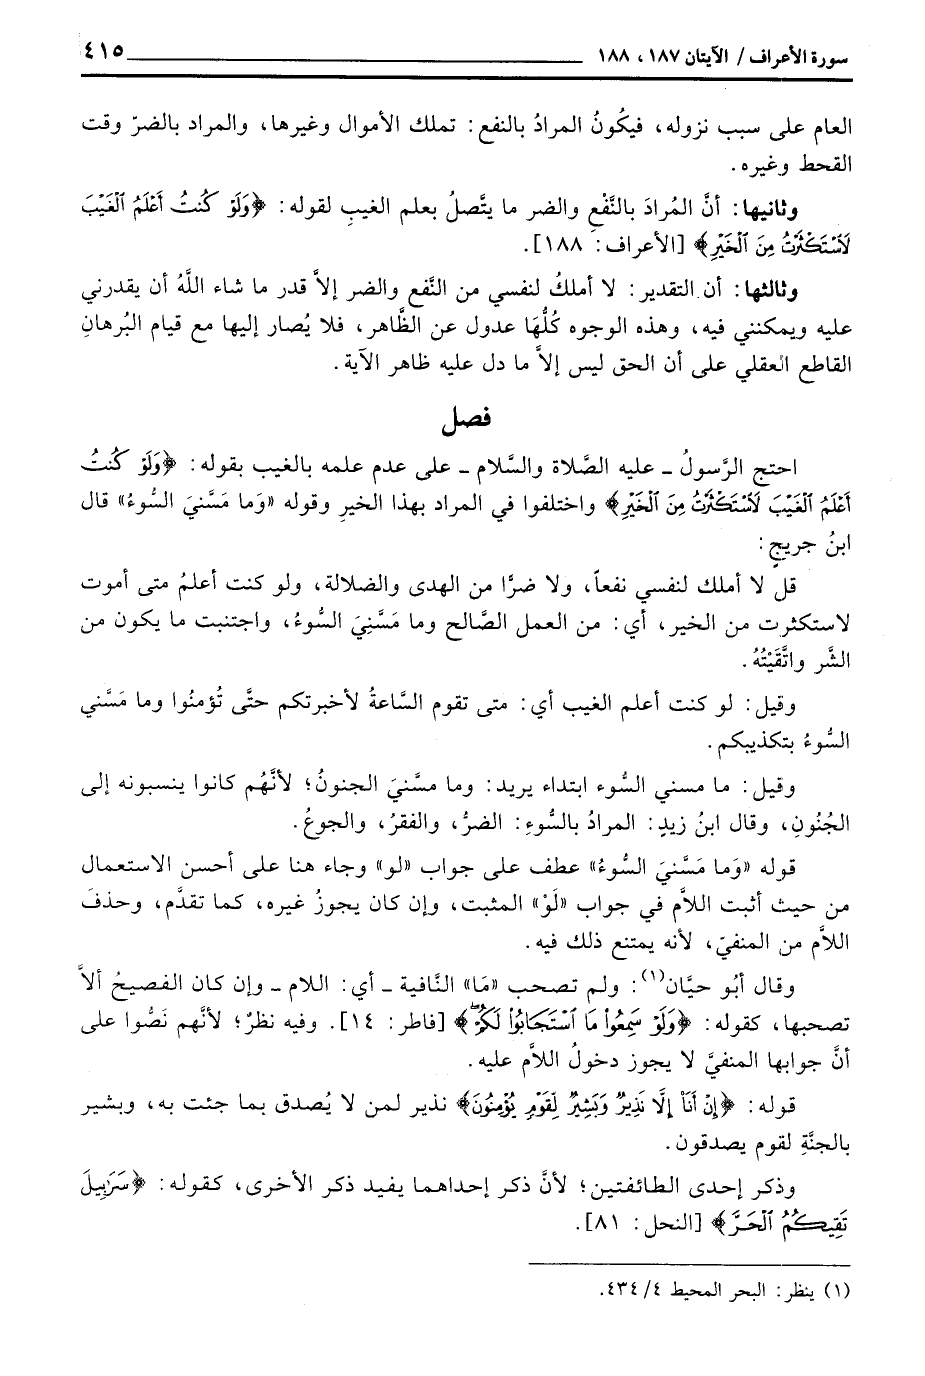 سورة الأعراف / الآيتان ١٨٧، ١٨٨ ٤١٥
العام على سبب نزوله، فيكُونُ المرادُ بالنفع: تملك الأموال وغيرها، والمراد بالضرّ وقت
القحط وغيره.
وثانيها: أنَّ المُرادَ بالنَّفْعِ والضر ما يتَّصلُ بعلم الغيبِ لقوله: ﴿وَلَوْ كُنتُ أَعْلَمُ ٱلْغَيْبَ
لَٱسْتَكْثَرْتُ مِنَ ٱلْخَيْرِ﴾ [الأعراف: ١٨٨].
وثالثها: أن التقدير: لا أملكُ لنفسي من النَّفع والضر إلاَّ قدر ما شاء اللَّهُ أن يقدرني
عليه ويمكنني فيه، وهذه الوجوه كُلُّهَا عدول عن الظَّاهر، فلا يُصار إليها مع قيام البُرهانِ
القاطع العقلي على أن الحق ليس إلاَّ ما دل عليه ظاهر الآية.
فصل
احتج الرَّسولُ ـ عليه الصَّلاة والسَّلام ـ على عدم علمه بالغيب بقوله: ﴿وَلَوْ كُنتُ
أَعْلَمُ ٱلْغَيْبَ لَٱسْتَكْثَرْتُ مِنَ ٱلْخَيْرِ﴾ واختلفوا في المراد بهذا الخيرِ وقوله «وَما مَسَّنيَ السُّوءُ» قال
ابنُ جريجٍ:
قل لا أملك لنفسي نفعاً، ولا ضرًّا من الهدى والضلالة، ولو كنت أعلمُ متى أموت
لاستكثرت من الخير، أي: من العمل الصَّالح وما مَسَّنِيَ السُّوءُ، واجتنبت ما يكون من
الشَّر واتَّقَيْتُهُ.
وقيل: لو كنت أعلم الغيب أي: متى تقوم السَّاعةُ لأخبرتكم حتَّى تُؤمنُوا وما مَسَّني
السُّوءُ بتكذيبكم.
وقيل: ما مسني السُّوء ابتداء يريد: وما مسَّنيَ الجنونُ؛ لأنَّهُم كانوا ينسبونه إلى
الجُنُونِ، وقال ابنُ زيدٍ: المرادُ بالسُّوءِ: الضرُّ، والفقرُ، والجوعُ.
قوله «وَما مَسَّنيَ السُّوءُ» عطف على جواب «لو» وجاء هنا على أحسن الاستعمال
من حيث أثبت اللاَّم في جواب «لَوْ» المثبت، وإن كان يجوزُ غيره، كما تقدَّم، وحذفَ
اللاَّم من المنفيّ، لأنه يمتنع ذلك فيه.
وقال أبُو حيَّان(١): ولم تصحب «مَا» النَّافية ـ أي: اللام ـ وإن كان الفصيحُ ألاَّ
تصحبها، كقوله: ﴿وَلَوْ سَمِعُوا۟ مَا ٱسْتَجَابُوا۟ لَكُمْ﴾ [فاطر: ١٤]. وفيه نظرٌ؛ لأنَّهم نَصُّوا على
أنَّ جوابها المنفيَّ لا يجوز دخولُ اللاَّم عليه.
قوله: ﴿إِنْ أَنَا۠ إِلَّا نَذِيرٌ وَبَشِيرٌ لِقَوْمٍ يُؤْمِنُونَ﴾ نذير لمن لا يُصدق بما جئت به، وبشير
بالجنَّةِ لقوم يصدقون.
وذكر إحدى الطائفتين؛ لأنَّ ذكر إحداهما يفيد ذكر الأخرى، كقوله: ﴿سَرَٰبِيلَ
تَقِيكُمُ ٱلْحَرَّ﴾ [النحل: ٨١].
(١) ينظر: البحر المحيط ٤/٤٣٤.